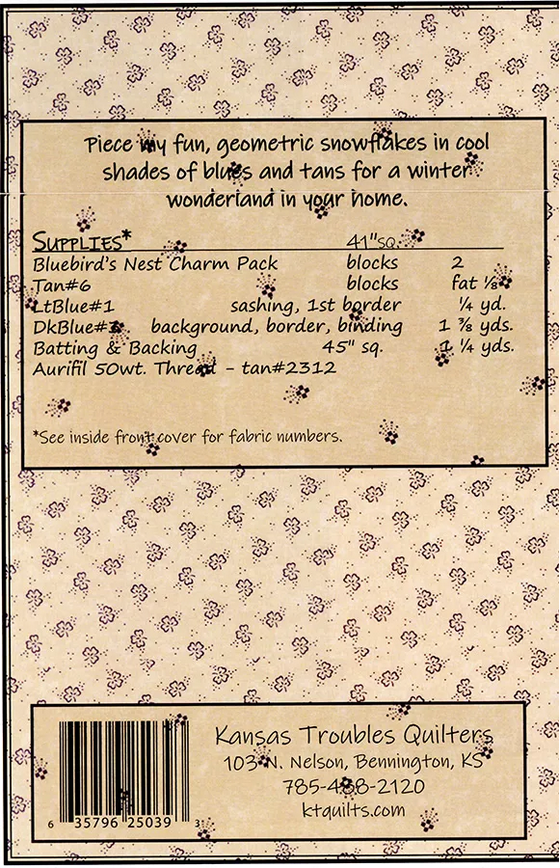 Piece my fun, geometric snowflakes in cool
shades of blues and tans for a winter
wonderland in your home.
SUPPLIES* 41"SQ.
Bluebird's Nest Charm Pack blocks 2
Tan#6 blocks fat ⅛
LtBlue#1 sashing, 1st border ¼ yd.
background, border, binding 1 ⅜ yds.
Batting & Backing 45" sq. 1 ¼ yds.
Aurifil 50wt. Thread - tan#2312
*See inside front cover for fabric numbers.
Kansas Troubles Quilters
103 N. Nelson, Bennington, KS
785-488-2120
ktquilts.com
6 35796 25039 3